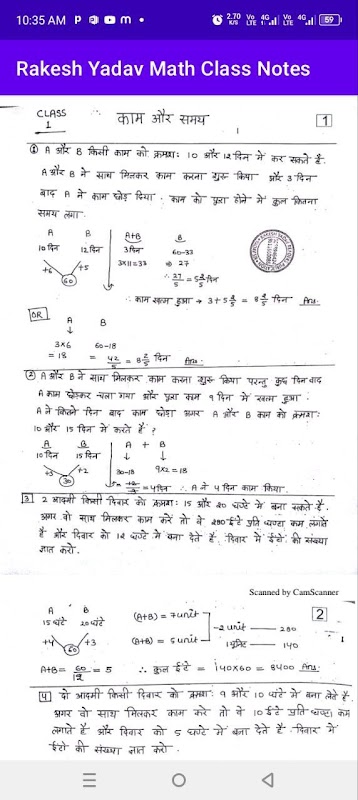 10:35 AM P m • 2.70 K/S Vo LTE 4G Vo LTE 4G 59
Rakesh Yadav Math Class Notes
CLASS 1
काम और समय
1
① A और B किसी काम को क्रमशः 10 और 12 दिन में कर सकते हैं.
A और B ने साथ मिलकर काम करना शुरू किया और 3 दिन
बाद A ने काम छोड़ दिया. काम को पूरा होने में कुल कितना
समय लगा.
A B A+B B
10 दिन 12 दिन 3 दिन 60-33
3×11=33 ⇒ 27
+6 +5
60
∴ 27/5 = 5 2/5 दिन
∴ काम खत्म हुआ → 3+5 2/5 = 8 2/5 दिन Ans.
OR
A B
↓
3×6 60-18
= 18 = 42/5 = 8 2/5 दिन Ans.
② A और B ने साथ मिलकर काम करना शुरू किया परन्तु कुछ दिन बाद
A काम छोड़कर चला गया और पूरा काम 9 दिन में खत्म हुआ.
A ने कितने दिन बाद काम छोड़ा अगर A और B काम को क्रमशः
10 और 15 दिन में करते हैं ?
A B A + B
10 दिन 15 दिन ↓ ↓
+3 +2 30-18 9×2=18
30
12/3 = 4 दिन ∴ A ने 4 दिन काम किया.
3 2 आदमी किसी दिवार को क्रमशः 15 और 20 घण्टे में बना सकते हैं.
अगर वो साथ मिलकर काम करे तो वे 280 ईंटे प्रति घण्टा कम लगाते
हैं और दिवार को 12 घण्टे में बना देते हैं. दिवार में ईंटों की संख्या
ज्ञात करो.
Scanned by CamScanner
2
A B
15 घंटे 20 घंटे
(A+B) = 7 unit
-2 unit — 280
+4 +3
60
(A+B) = 5 unit
1 यूनिट — 140
A+B = 60/12 = 5 ∴ कुल ईंटे = 140×60 = 8400 Ans.
4 दो आदमी किसी दिवार को क्रमशः 9 और 10 घंटे में बना लेते हैं.
अगर वो साथ मिलकर काम करे तो वे 10 ईंटे प्रति घण्टा कम
लगाते हैं और दिवार को 5 घण्टे में बना देते हैं. दिवार में
ईंटों की संख्या ज्ञात करो.